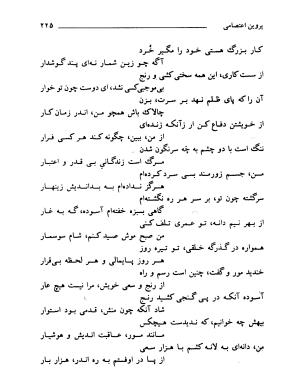 پروین اعتصامی
۲۲۵
کار بزرگ هستی خود را مگیر خُرد
آگه چو زین شمار نه‌ای پند گوشدار
از سست کاری، این همه سختی کشی و رنج
بی‌موجبی کسی نشد، ای دوست چون تو خوار
آن را که پای ظلم نهد بر سرت، بزن
چالاک باش همچو من، اندر زمان کار
از خویشتن دفاع کن ار زآنکه زنده‌ای
از من، ببین، چگونه کند هر کسی فرار
ننگ است با دو چشم به چَه سرنگون شدن
مرگ است زندگانیِ بی قدر و اعتبار
من، جسم زورمند بسی سرد کرده‌ام
هرگز نداده‌ام به بداندیش زینهار
سرگشته چون تو، بر سر هر ره نگشته‌ام
گاهی بسبزه خفته‌ام آسوده، گه به غار
از بهر نیم دانه، تو عمری تلف کنی
من صبح موش صید کنم، شام سوسمار
همواره در گذرگه خلقی، تو تیره روز
هر روز پایمالی و هر لحظه بی‌قرار
خندید مور و گفت، چنین است رسم و راه
از رنج و سعی خویش، مرا نیست هیچ عار
آسوده آنکه در پی گنجی کشید رنج
شاد آنکه چون منش، قدمی بود استوار
بیهش چه خوانیم، که ندیدست هیچکس
مانند مور، عاقبت اندیش و هوشیار
من، دانه‌ای به لانه کشم با هزار سعی
از پا در اوفتم به ره اندر، هزار بار